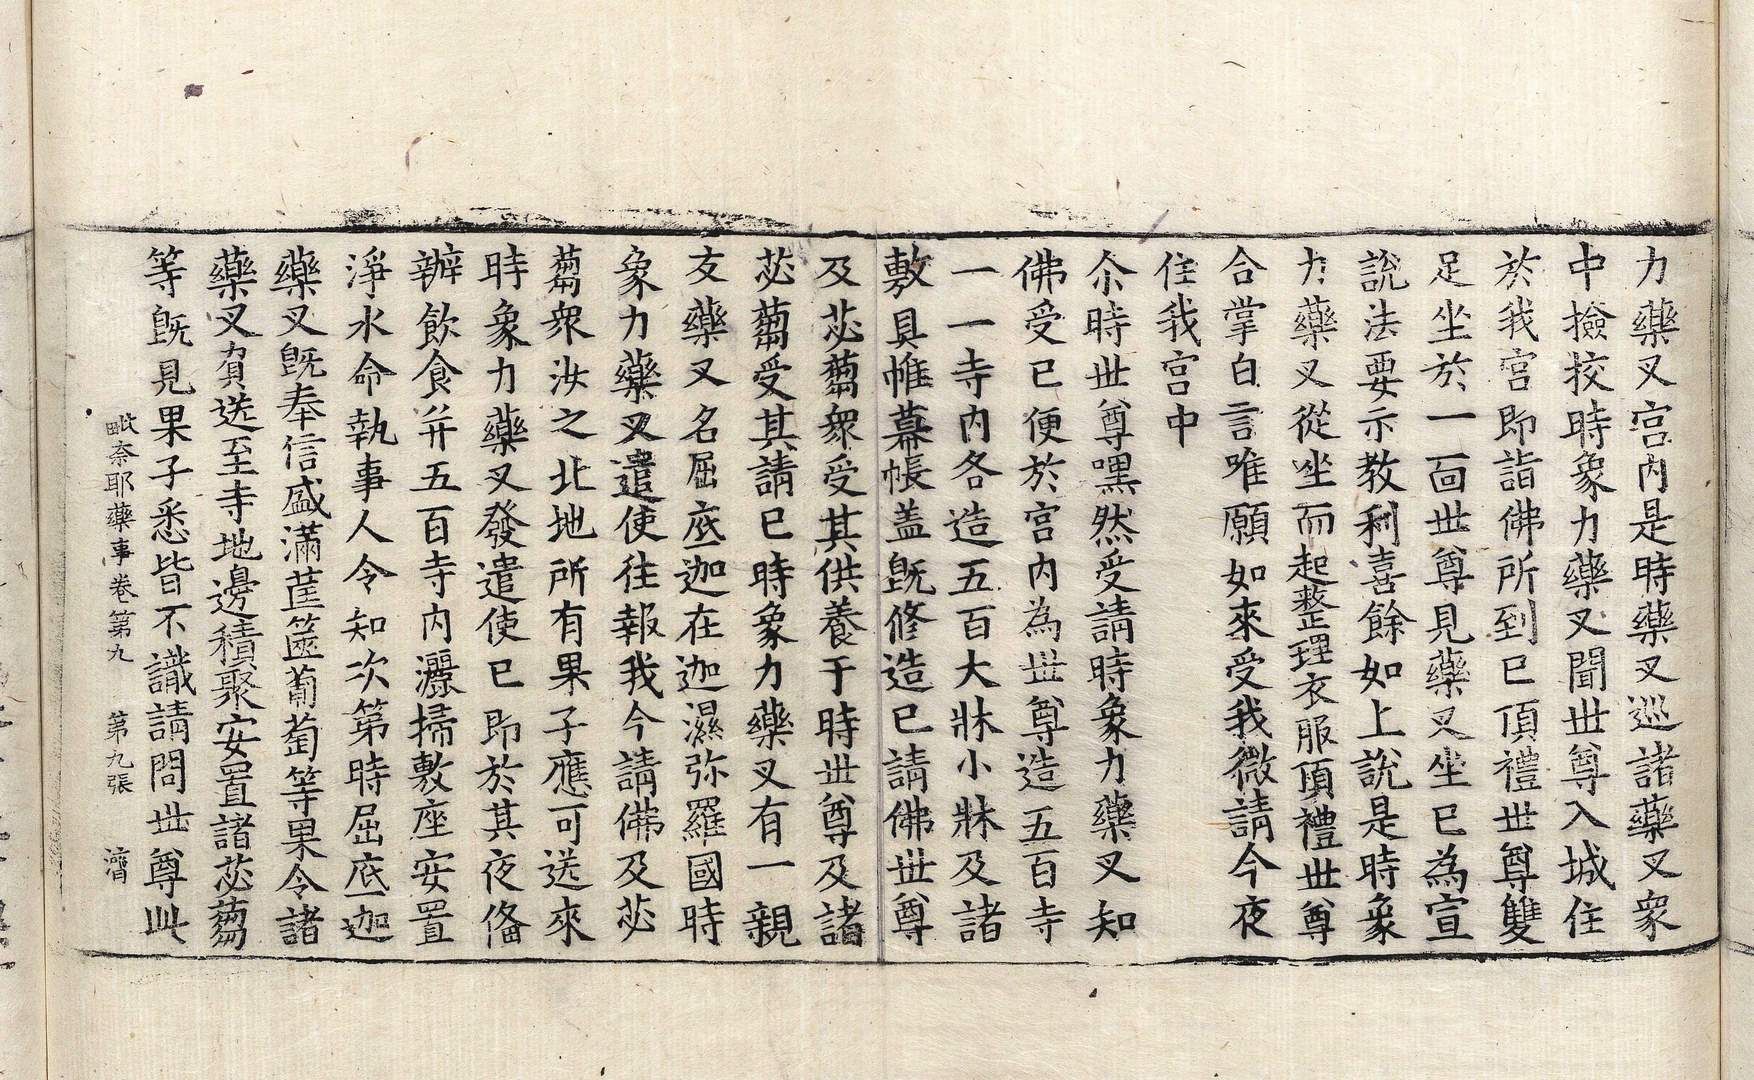 力藥叉宮內是時藥叉巡諸藥叉衆
中撿挍時象力藥叉聞世尊入城住
於我宮即詣佛所到已頂禮世尊雙
足坐於一面世尊見藥叉坐已為宣
說法要示教利喜餘如上說是時象
力藥叉從坐而起整理衣服頂禮世尊
合掌白言唯願如來受我微請今夜
住我宮中
尒時世尊嘿然受請時象力藥叉知
佛受已便於宮內為世尊造五百寺
一一寺內各造五百大牀小牀及諸
敷具帷幕帳盖旣修造已請佛世尊
及苾蒭衆受其供養于時世尊及諸
苾蒭受其請已時象力藥叉有一親
友藥叉名屈底迦在迦濕弥羅國時
象力藥叉遣使往報我今請佛及苾
蒭衆汝之北地所有果子應可送來
時象力藥叉發遣使已即於其夜俻
辦飲食并五百寺內灑掃敷座安置
淨水命執事人令知次第時屈底迦
藥叉旣奉信盛滿筐篋蔔萄等果令諸
藥叉負送至寺地邊積聚安置諸苾蒭
等旣見果子悉皆不識請問世尊此
毗奈耶藥事卷第九　第九張　濟